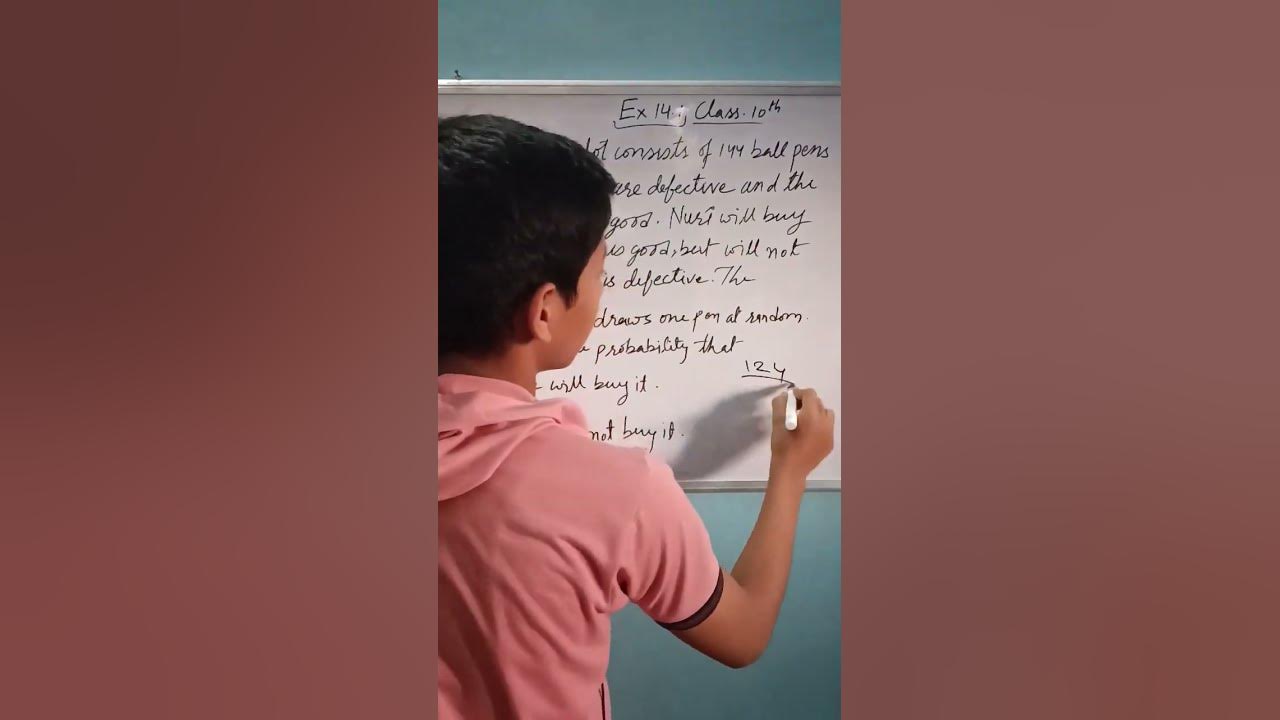 Ex 14: Class. 10th
lot consists of 144 ball pens
are defective and the
good. Nuri will buy
is good, but will not
is defective. The
draws one pen at random.
probability that
will buy it.
not buy it.
124